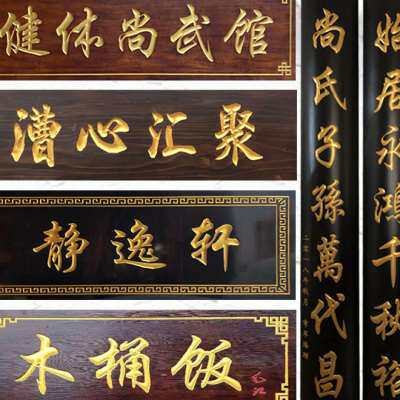 健体尚武馆
漕心汇聚
静逸轩
木桶饭
尚氏子孫萬代昌
始居永鴻千秋裕